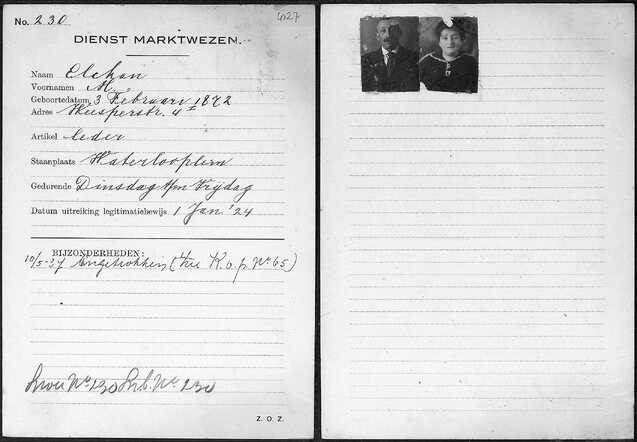 No. 230
4027
DIENST MARKTWEZEN.
Naam Elekan
Voornamen M.
Geboortedatum 3 Februari 1872
Adres Weesperstr. 4
Artikel leder
Staanplaats Waterlooplein
Gedurende Dinsdag t/m Vrijdag
Datum uitreiking legitimatiebewijs 1 Jan '24
BIJZONDERHEDEN:
10/5-37 Ingetrokken (zie K.v.p. No. 65)
No. 230 No. 230
Z. O. Z.